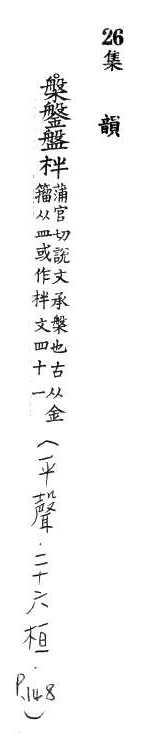 26
集韻
槃鎜盤柈蒲官切說文承槃也古从金籀从皿或作柈文四十一(平聲.二十六桓.P.148)